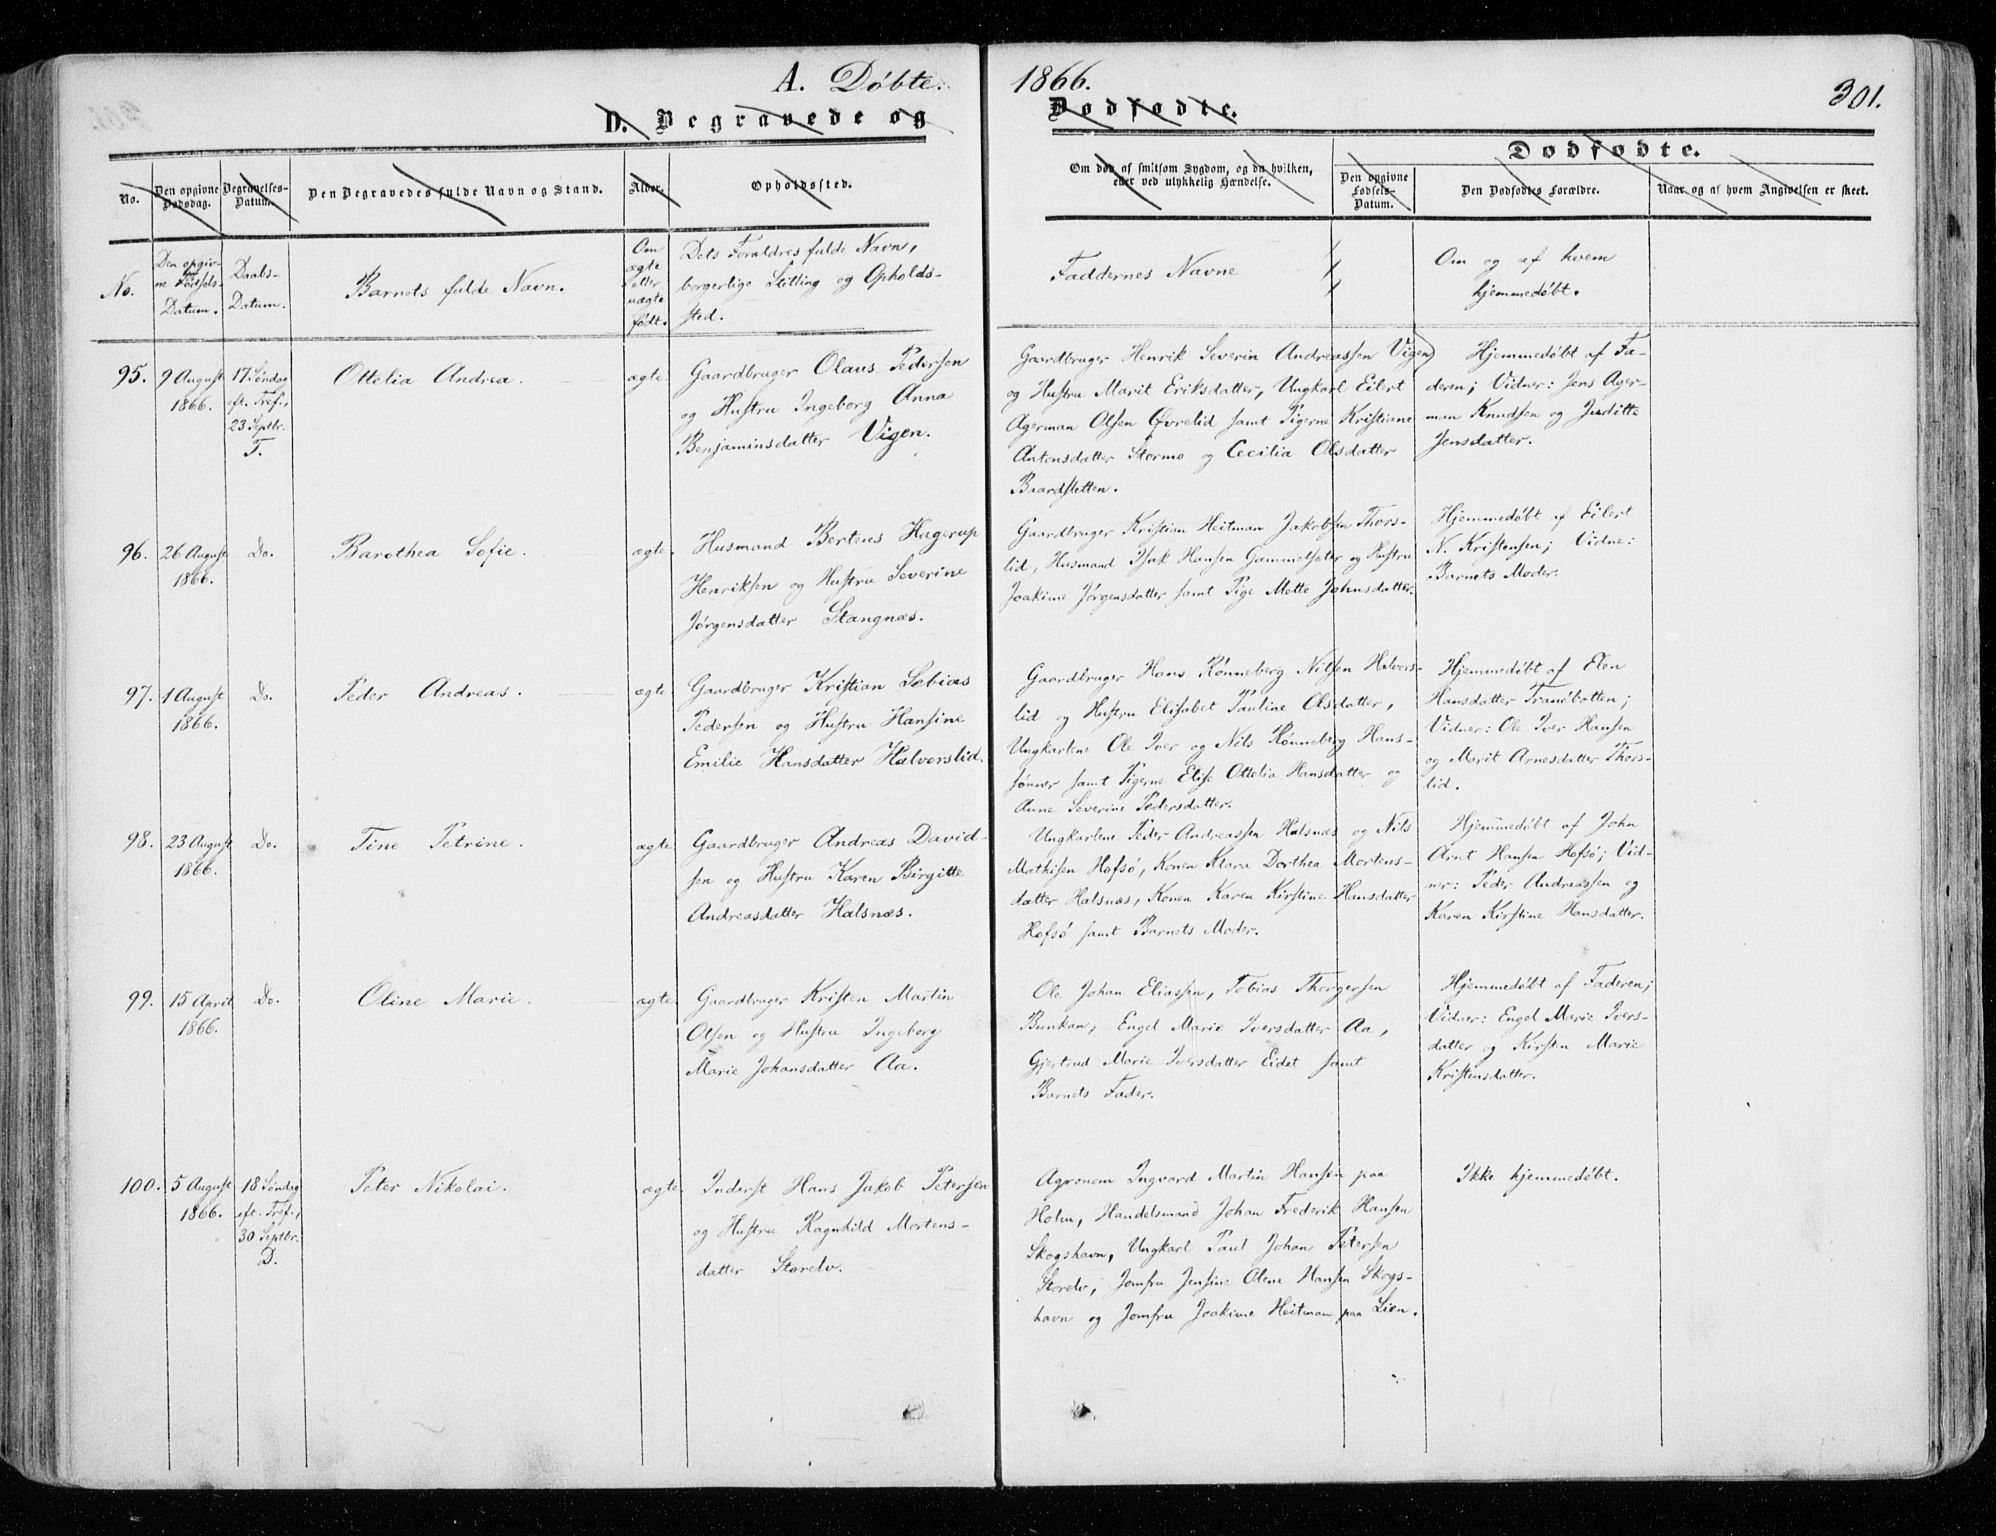 A. Døbte. 1866. 301.
D. Begravede og Dødfødte.
No.
Den opgivne Dødsdag.
Begravelses-Datum.
Den Begravedes fulde Navn og Stand.
Alder.
Opholdssted.
Om død af smitsom Sygdom, og da hvilken,
eller ved ulykkelig Hændelse.
Dødfødte.
Den opgivne Fødsels-Datum.
Den Dødfødtes Forældre.
Naar og af hvem Angivelsen er skeet.
No.
Den opgiv-
ne Fødsels-
Datum.
Daabs-
Datum.
Barnets fulde Navn.
Om
ægte
eller
uægte
født.
Dets Forældres fulde Navn,
borgerlige Stilling og Opholds-
sted.
Faddernes Navne
Om og af hvem
hjemmedøbt.
95.
9 August
1866.
17. Søndag
eft. Tref.,
23 Septbr.
T.
Ottelia Andrea.
ægte.
Gaardbruger Olaus Pedersen
og Hustru Ingeborg Anna
Benjaminsdatter Vigen.
Gaardbruger Henrik Severin Andreassen Vigen
og Hustru Marit Eriksdatter, Ungkarl Eilert
Agerman Olsen Øvrelid samt Pigerne Kristiane
Antonsdatter Stormo og Cecilia Olsdatter
Baardsletten.
Hjemmedøbt af Fa-
deren; Vidner: Jens Ager-
man Knudsen og Juditte
Jensdatter.
96.
26 August
1866.
Do.
Barothea Sofie.
ægte.
Husmand Berteus Hagerup
Henriksen og Hustru Severine
Jørgensdatter Stangnæs.
Gaardbruger Kristian Heitman Jakobsen Thors-
lid, Husmand Isak Hansen Gammelsæter og Hustru
Joakime Jørgensdatter samt Pige Mette Johnsdatter.
Hjemmedøbt af Eilert
N. Kristensen; Vidne:
Barnets Moder.
97.
1 August
1866.
Do.
Peder Andreas.
ægte.
Gaardbruger Kristian Sebias
Pedersen og Hustru Hansine
Emilie Hansdatter Halvorslid.
Gaardbruger Hans Rønneberg Nilsen Halvors-
lid og Hustru Elisabet Pauline Olsdatter,
Ungkarlene Ole Iver og Nils Rønneberg Hans-
sønner samt Pigerne Elise Ottelia Hansdatter og
Anne Severine Pedersdatter.
Hjemmedøbt af Elen
Hansdatter Tranøbotten;
Vidner: Ole Iver Hansen
og Marit Arnesdatter Thors-
lid.
98.
23 August
1866.
Do.
Tine Petrine.
ægte
Gaardbruger Andreas David-
sen og Hustru Karen Birgitte
Andreasdatter Halsnæs.
Ungkarlene Peder Andreassen Halsnæs og Nils
Mathisen Hofsø, Konen Klara Dorthea Mortens-
datter Halsnæs, Konen Karen Kirstine Hansdatter
Hofsø samt Barnets Moder.
Hjemmedøbt af John
Arnt Hansen Hofsø; Vid-
ner: Peder Andreassen og
Karen Kirstine Hansdatter.
99.
15 April
1866.
Do.
Oline Marie.
ægte
Gaardbruger Kristen Martin
Olsen og Hustru Ingeborg
Marie Johansdatter Aa.
Ole Johan Eliassen, Tobias Thorgersen
Bunkan, Engel Marie Iversdatter Aa,
Gjertrud Marie Iversdatter Eidet samt
Barnets Fader.
Hjemmedøbt af Faderen;
Vidner: Engel Marie Ivers-
datter og Kirsten Marie
Kristensdatter.
100.
5 August
1866.
18 Søndag
eft. Tref.,
30 Septbr.
D.
Peter Nikolai.
ægte.
Inderst Hans Jakob Petersen
og Hustru Ragnhild Mortens-
datter Storelv.
Agronom Ingvard Martin Hansen paa
Holm, Handelsmand Johan Frederik Hansen
Skogshavn, Ungkarl Paul Johan Petersen
Storelv, Jomfru Jensine Olene Hansen Skogs-
havn og Jomfru Joakime Heitman paa Lien.
Ikke hjemmedøbt.